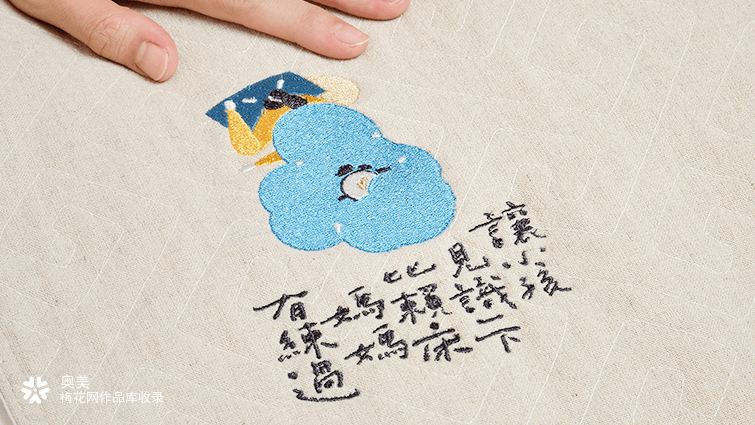 讓小孩
見識下
比賴床
媽媽
有練過
奥美
梅花网作品库收录